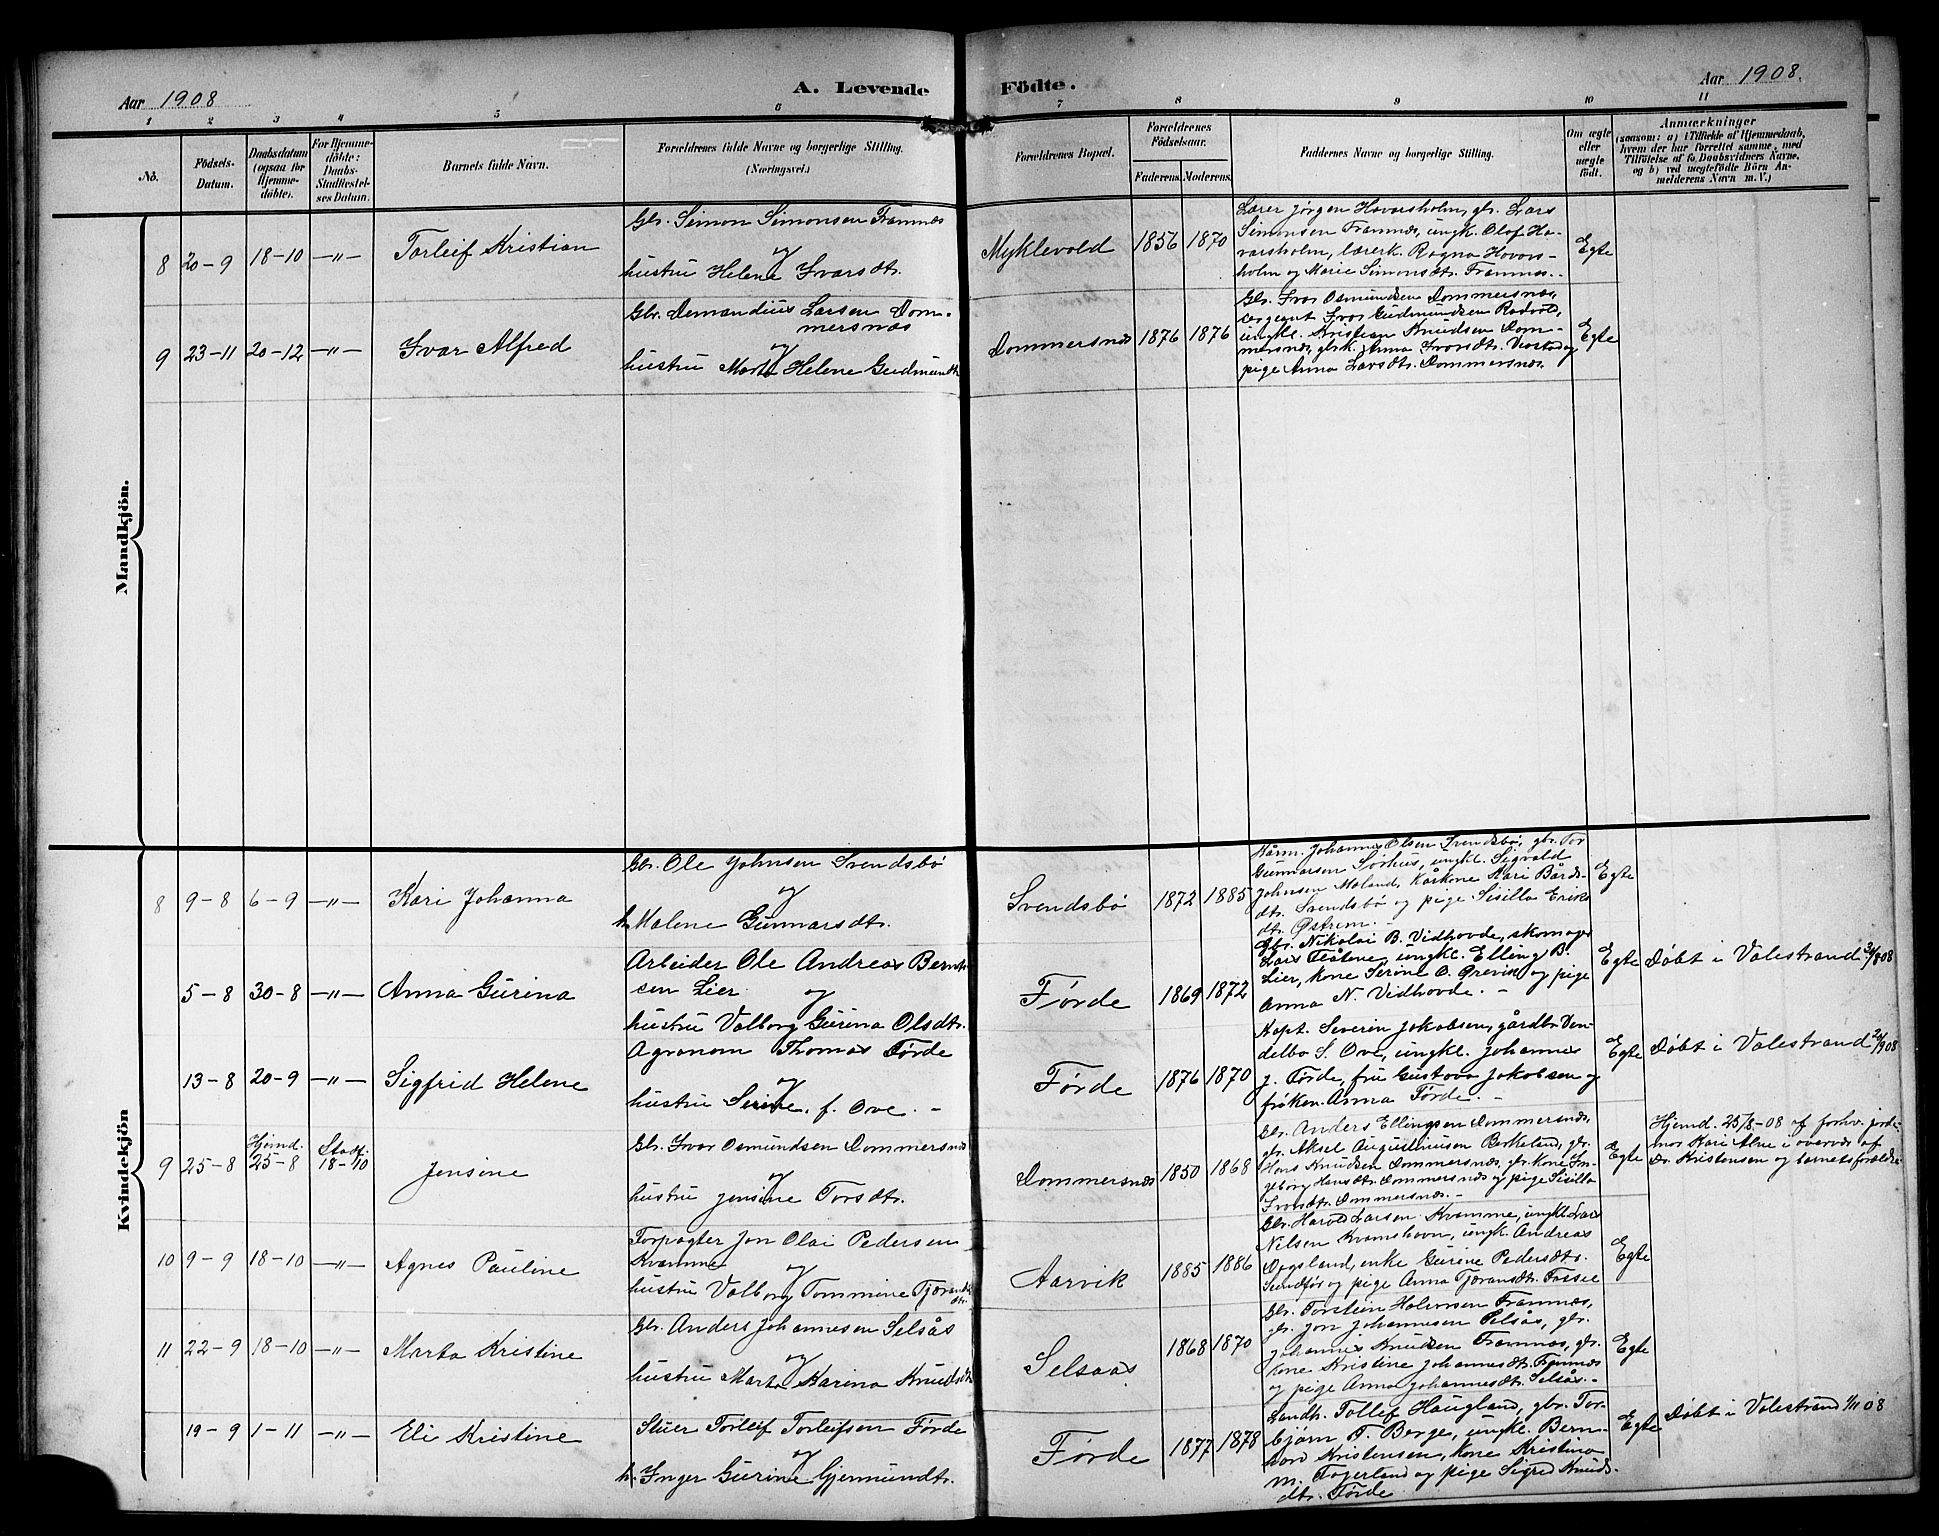 Aar 1908
A. Levende Födte.
Aar 1908.
1 2 3 4 5 6 7 8 9 10 11
No.
Födsels-
Datum.
Daabsdatum
(ogsaa for
Hjemme-
döbte).
For Hjemme-
döbte:
Daabs-
Stadfæstel-
ses Datum.
Barnets fulde Navn.
Forældrenes fulde Navne og borgerlige Stilling.
(Næringsvei.)
Forældrenes Bopæl.
Forældrenes
Födselsaar.
Faderens. Moderens.
Faddernes Navne og borgerlige Stilling.
Om ægte
eller
uægte
födt.
Anmærkninger
(saasom: a) i Tilfælde af Hjemmedaab,
hvem der har forrettet samme, med
Tilföielse af to Daabsvidners Navne,
og b) ved uægtefödte Börn An-
melderens Navn m. V.)
Mandkjön.
8 20-9 18-10 -"- Torleif Kristian
Gbr. Simon Simonsen Framnæs
og
hustru Helene Ivarsdtr.
Myklevold 1856 1870
Lærer Jørgen Hovarsholm, gbr. Lars
Simonsen Framnæs, ungk. Olaf Ho-
varsholm, lærerk. Ragna Hovars-
holm og Marie Simonsdtr. Framnæs.
Egte
9 23-11 20-12 -"- Ivar Alfred
Gbr. Demandius Larsen Dom-
mersnæs
og
hustru Marta Helene Gudmundtr.
Dommersnæs 1876 1876
Gbr. Ivar Osmundsen Dommersnæs,
sergeant Ivar Gudmundsen
ungk. Kristian Knudsen Dom-
mersnæs, gbrk. Anna Ivarsdtr. og
pige Anna Larsdtr. Dommersnæs.
Egte
Kvindekjön
8 9-8 6-9 -"- Kari Johanna
Gbr. Ole Johnsen Svendsbö
og
h. Malene Gunnarsdtr.
Svendsbö 1872 1885
Kårm. Johannes Olsen Svendsbö, gbr. Tor
Gunnarsen Sörhus, ungk. Sigvald
Johnsen Moland, Kårkone Kari Bårds-
dtr. Svendsbö og pige Sisilla Eriks
dtr. Østrem.
Egte
5-8 30-8 -"- Anna Gurina
Arbeider Ole Andreas Bernt-
sen Lier og
hustru Valborg Gurina Olsdtr.
Førde 1869 1872
Gbr. Nikolai B. Vidhovde, skomager
Lars Flåtne, ungk. Elling B.
Lier, kone Serine O. Grevik og pige
Anna N. Vidhovde. -
Egte
Døbt i Valestrand 30/8 08
13-8 20-9 -"- Sigfrid Helene
Agronom Thomas Førde
og
hustru Serine, f. Ove. -
Førde 1876 1870
Kapt. Severin Jakobsen, gårdbr. Ven-
delbo S. Ove, ungk. Johannes
J. Førde, fru Gustava Jakobsen og
frøken Anna Førde. -
Egte
Døbt i Valestrand 20/9 08
9 25-8 Hjemd. 25-8 Stadf. 18-10 Jensine
Gbr. Ivar Osmundsen Dommersnæs
og
hustru Jensine Torsdtr.
Dommersnæs 1850 1868
Gbr. Anders Ellingsen Dommersnæs,
gbr. Aksel Augustinusen Berkeland, gbr.
Hans Knudsen Dommersnæs, gbr. kone In-
geborg Hansdtr. Dommersnæs og pige Sisilla
Ivarsdtr. Dommersnæs. -
Egte
Hjemd. 25/8-08 af forhv. jorde-
mor Kari Alne i overvær af
Dr. Kristensen og barnets forældre
10 9-9 18-10 -"- Agnes Pauline
Forpagter Jon Olai Pedersen
Kvamme og
hustru Valborg Tommine Tjerands
dtr.
Aarvik 1885 1886
Gbr. Harald Larsen Kvamme, ungk. Lars
Nilsen Kvamshovn, ungk. Andreas
Dogsland, enke Gurine Pedersdtr.
Sundfør og pige Anna Tjeransdtr. Fosse
Egte
11 22-9 18-10 -"- Marta Kristine
Gbr. Anders Johannesen Selsås
og
hustru Marta Karena Knudsdtr
Selsaas 1868 1870
Gbr. Torstein Halvorsen Framnæs,
gbr. Jon Johannesen Selsås, gbr.
Johannes Knudsen Framnæs, gbr.
kone Kristine Johannesdtr. Framnæs
og pige Anna Johannesdtr. Selsås. -
Egte
19-9 1-11 -"- Eli Kristine
Stuer Torleif Torleifsen Førde
og
h. Inger Gurine Gjermundtr.
Førde 1877 1878
Landh. Tollef Haugland, gbr. Tor-
björn T. Berge, ungk. Bern-
hard Kristensen, kone Kristina
M. Fagerland og pige Sigrid Knuds-
dtr. Førde
Egte
Døbt i Valestrand 1/11 08